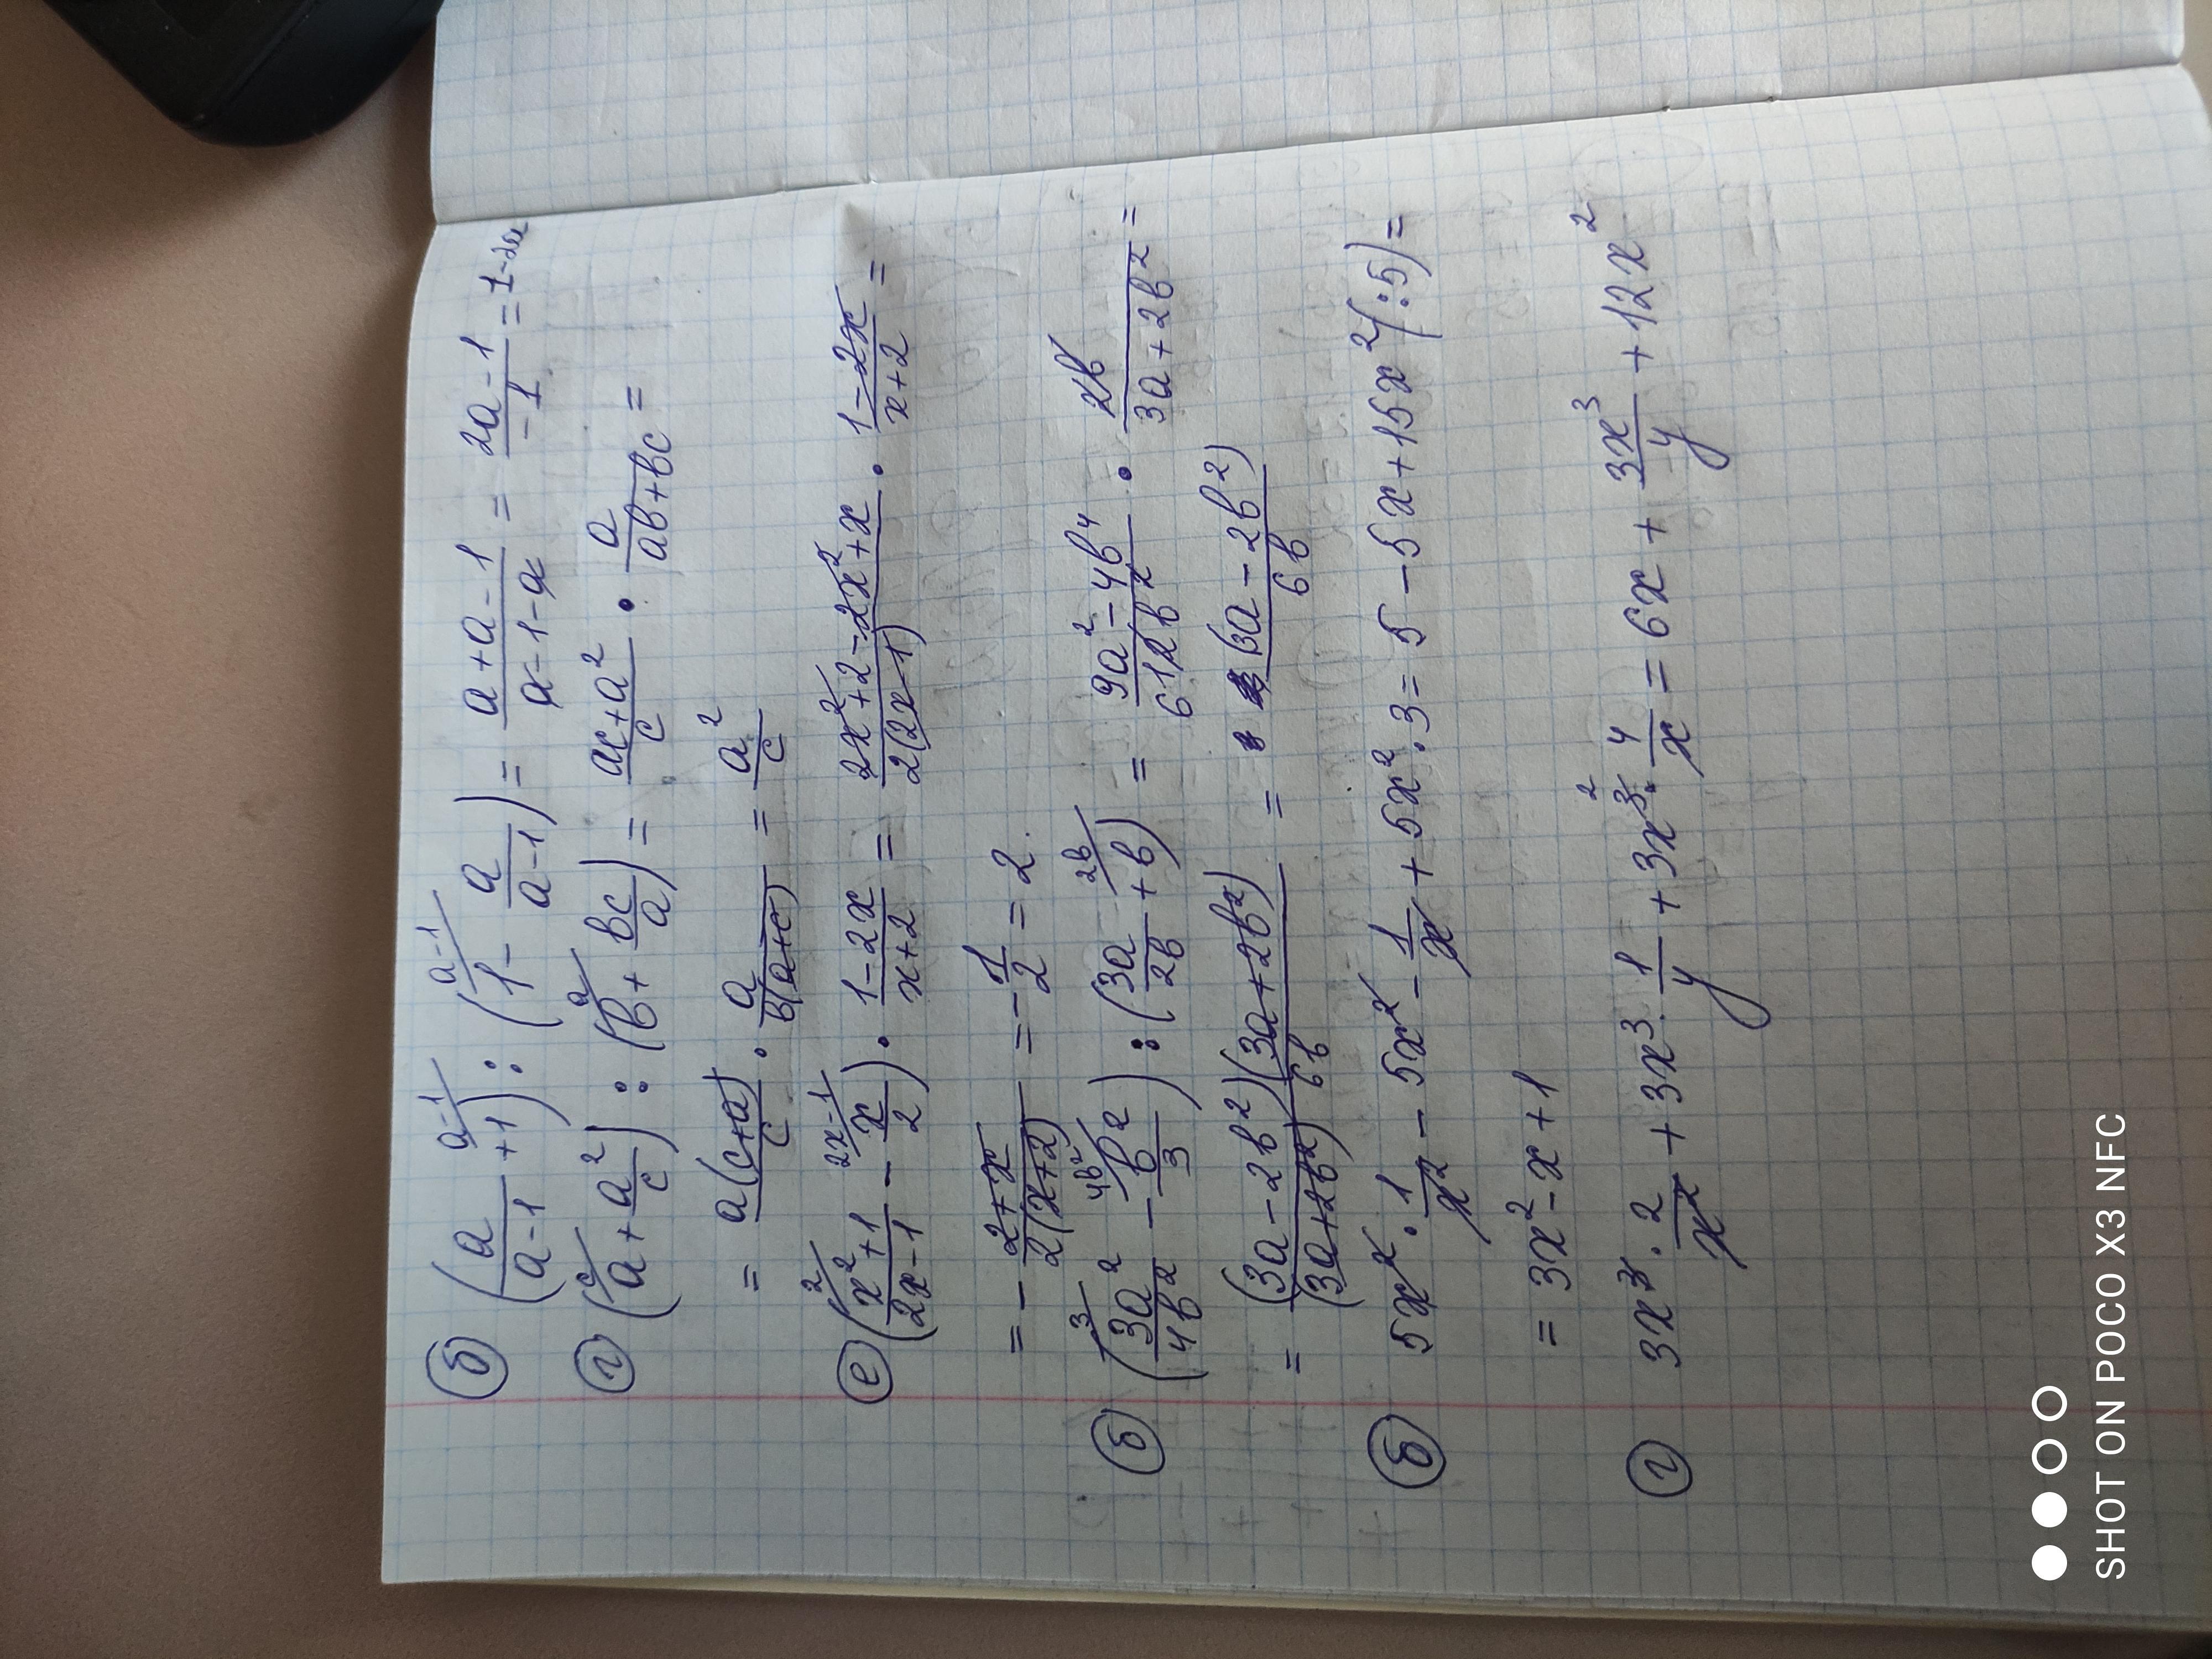 б) (a/(a-1) + 1^(a-1)) : (1^(a-1) - a/(a-1)) = (a+a-1)/(a-1-a) = (2a-1)/(-1) = 1-2a
г) (a^(c) + a²/c) : (b^(a) + bc/a) = (ac+a²)/c · a/(ab+bc) =
= a(c+a)/c · a/(b(a+c)) = a²/c
е) ((x²+1)^(2)/(2x-1) - x^(2x-1)/2) · (1-2x)/(x+2) = (2x²+2-2x²+x)/(2(2x-1)) · (1-2x)/(x+2) =
= - (2+x)/(2(x+2)) = - 1/2 = 2.
б) (3a²^(3)/4b² - b²^(4b²)/3) : (3a/2b + b^(2b)) = (9a²-4b⁴)/(6 12b²) · 2b/(3a+2b²) =
= (3a-2b²)(3a+2b²)/((3a+2b²) 6b) = (3a-2b²)/6b
б) 5x² · 1/x² - 5x² - 1/x + 5x² · 3 = 5 - 5x + 15x² (:5) =
= 3x² - x + 1
г) 3x³ · 2/x² + 3x³ · 1/y + 3x³ ² · 4/x = 6x + 3x³/y + 12x²
SHOT ON POCO X3 NFC